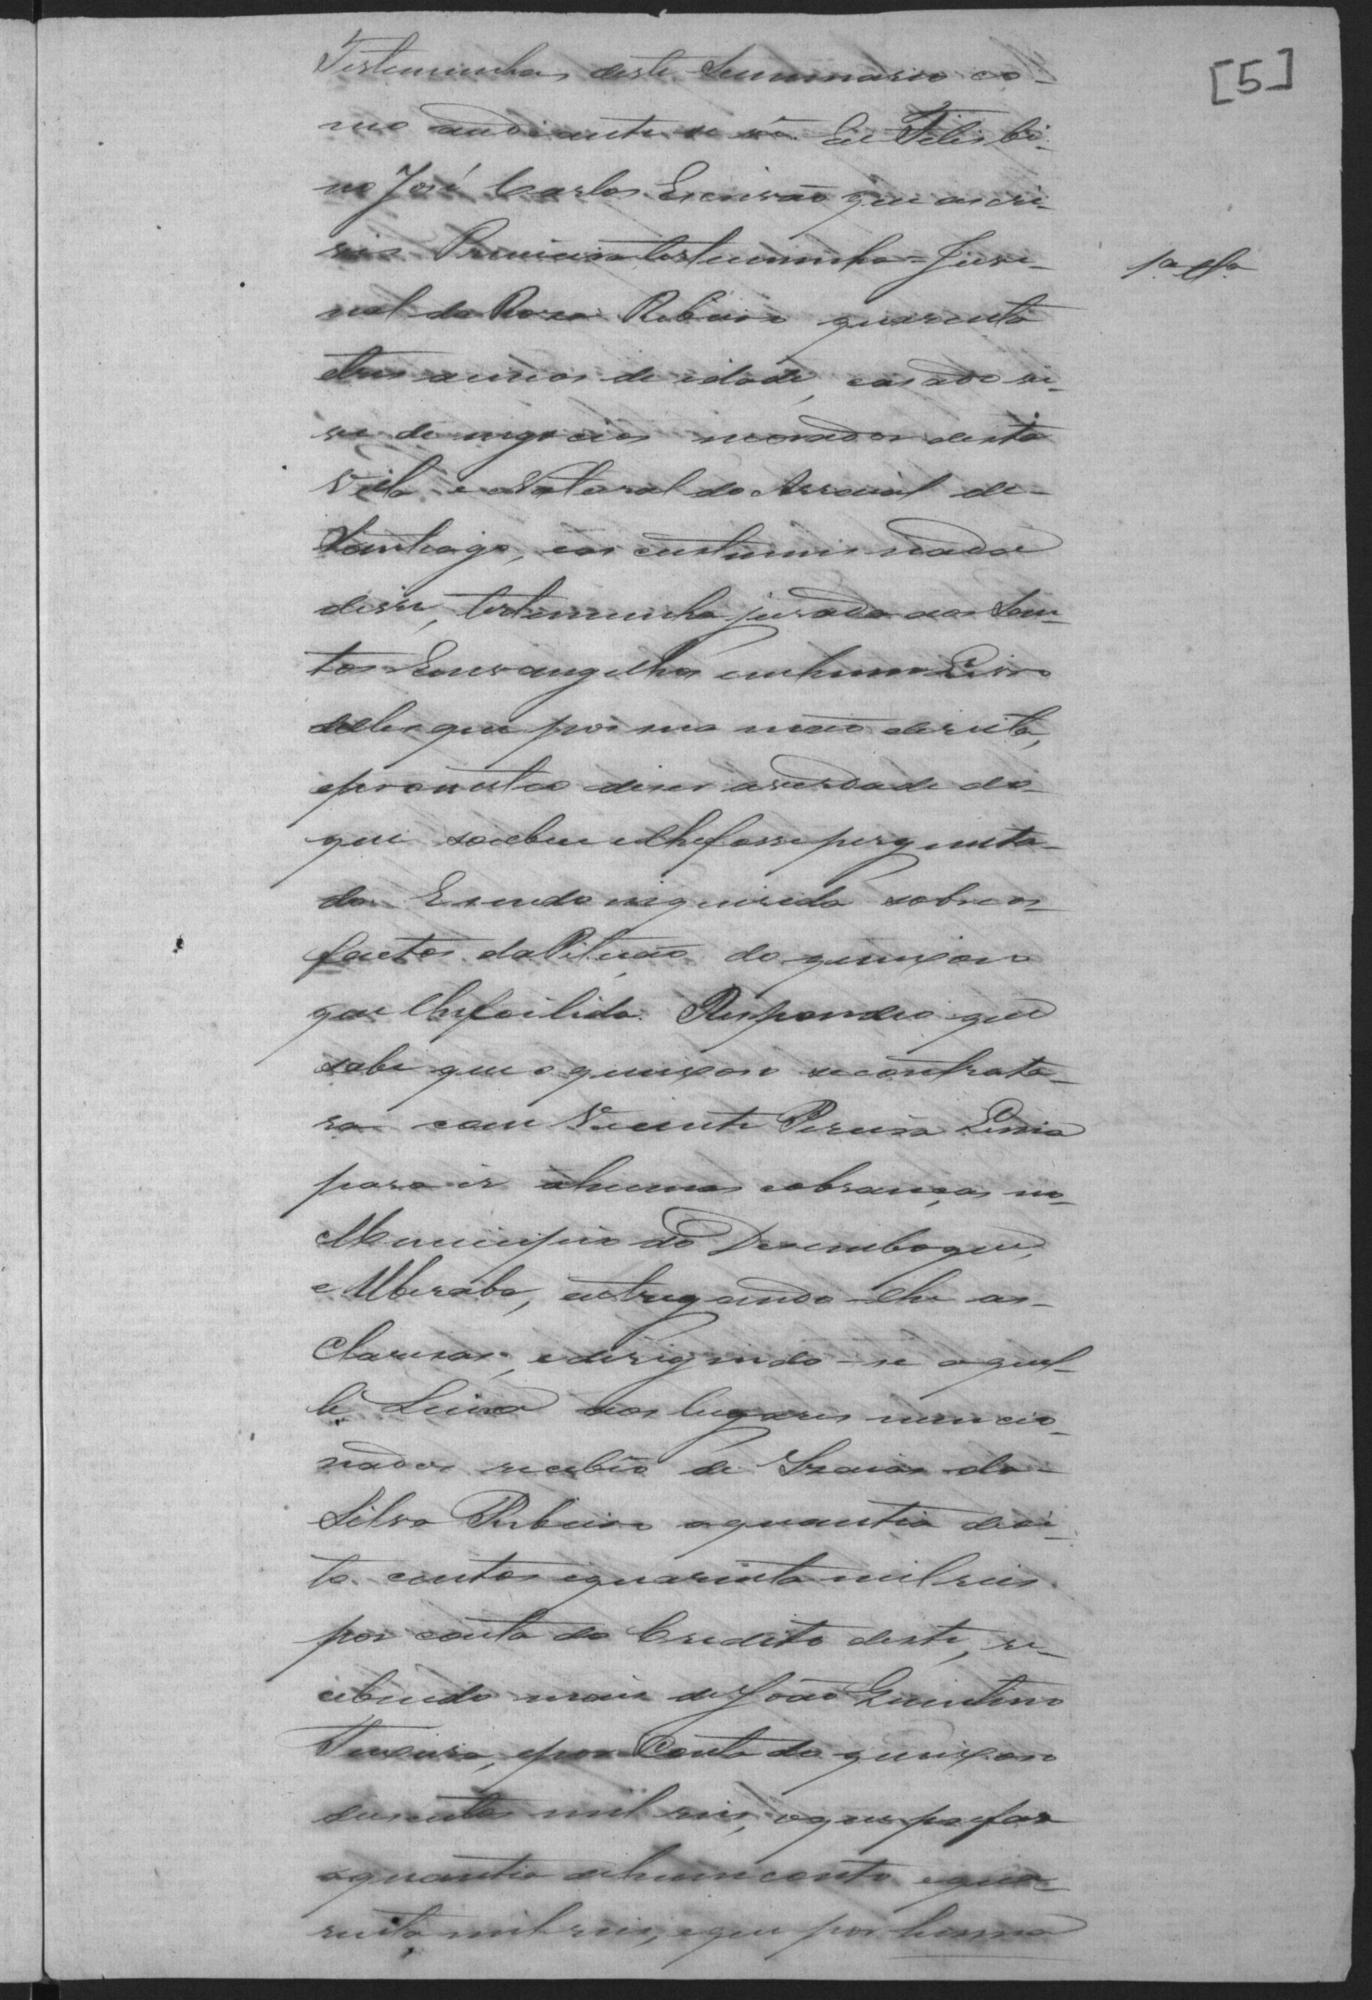 [5]
Testemunhas deste Summario co-
mo aodiante se vê. Eu Felisbi-
no José Carlos Escrivão que escri-
vi. Primeira testemunha = Juve- 1ª tª
nal da Roza Ribeiro quarenta
e tres annos de idade, casado vi-
ve de negocios morador desta
Villa e Natural do Arraial de
Santiago, aos custumes nada
disse, testemunha jurada aos San-
tos Evangelhos em hum Livro
delles que pos sua mão direita,
e prometteo dizer a verdade do
que soubesse e lhe fosse pergunta-
do. E sendo inquirida sobre os
factos da Petição do queixoso
que lhe foi lida. Respondeo que
sabe que o queixoso se contrata-
ra com Vicente Pereira
para ir a humas cobranças no
Municipio do Desemboque,
e Uberaba, entregando-lhe as
Clarezas, e dirigindo-se aquel-
le aos lugares mencio-
nados recebeo de Izaias da
Silva Ribeiro a quantia de oi-
to centos e quarenta mil reis
por conta do Credito deste, re-
cebendo mais de João Quintino
Teixeira, e por Conta do queixoso
duzentos mil reis, o que prefas
a quantia de hum conto e qua-
renta mil reis, e que por huma